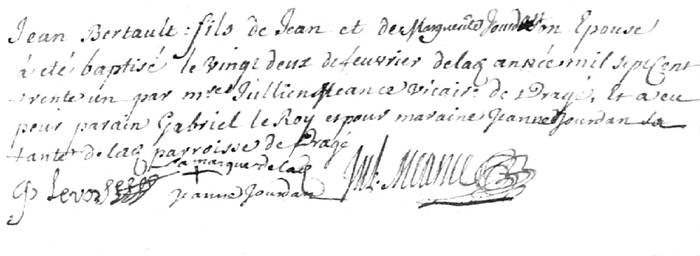 Jean Bertault fils de Jean et de Marguerite Jourdan son Epouse
à eté baptisé le vingt deux de feuvrier de laq année mil sept Cent
trente un par mre Jullien Meance vicaire de Dragé, Et a eu
pour parain Gabriel le Roy et pour maraine Jeanne Jourdan sa
tante de laq parroisse de Dragé
la marque de laq
G leroy Jeanne Jourdan Jul. Meance